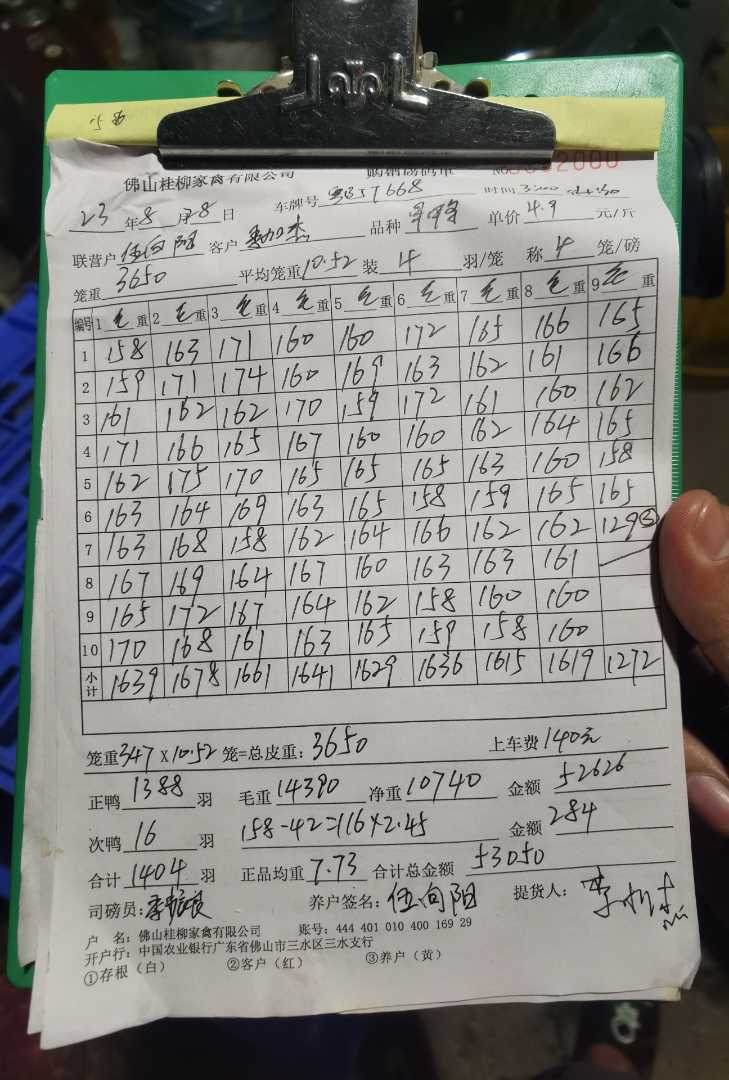 佛山桂柳家禽有限公司
23年8月28日 车牌号 57668 时间
联营户 伍向阳 客户 品种 单价 4.9 元/斤
笼重 3650 平均笼重 10.52 装 4 羽/笼 称 4 笼/磅
编号 1 毛重 2 毛重 3 毛重 4 毛重 5 毛重 6 毛重 7 毛重 8 毛重 9 毛重
1 158 163 171 160 160 172 165 166 165
2 159 171 174 160 169 163 162 161 166
3 161 162 162 170 159 172 161 160 162
4 171 166 165 167 160 160 162 164 165
5 162 175 170 165 165 165 163 160 158
6 163 164 169 163 165 158 159 165 165
7 163 168 158 162 164 166 162 162 129③
8 167 169 164 167 160 163 163 161
9 165 172 167 164 162 158 160 160
10 170 168 161 163 165 159 158 160
小计 1639 1678 1661 1641 1629 1636 1615 1619 1272
笼重 347 X 10.52 笼=总皮重: 3650 上车费 140元
正鸭 1388 羽 毛重 14390 净重 10740 金额 52626
次鸭 16 羽 158-42=116×2.45 金额 284
合计 1404 羽 正品均重 7.73 合计总金额 53050
司磅员: 养户签名: 伍向阳 提货人:
户 名: 佛山桂柳家禽有限公司 账号: 444 401 010 400 169 29
开户行: 中国农业银行广东省佛山市三水区三水支行
①存根（白） ②客户（红） ③养户（黄）